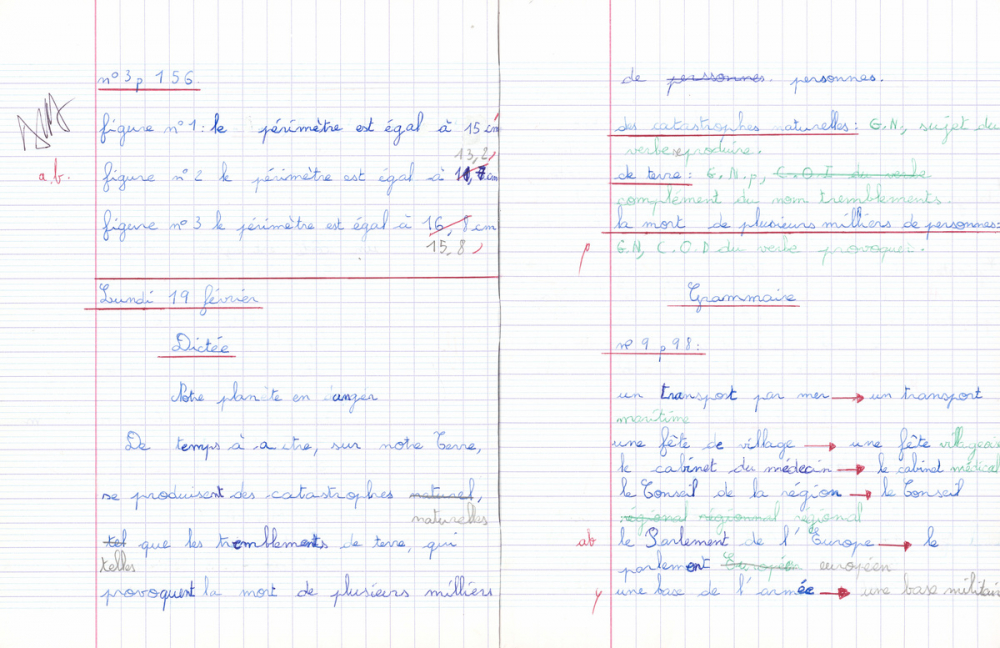 n° 3 p 156.
figure n° 1 : le périmètre est égal à 15 cm
13,2
a.b. figure n° 2 le périmètre est égal à cm
figure n° 3 le périmètre est égal à 16,8 cm
15,8
Lundi 19 février
Dictée
Notre planète en danger
De temps à autre, sur notre Terre,
se produisent des catastrophes naturel,
naturelles
tel que les tremblements de terre, qui
telles
provoquent la mort de plusieurs milliers
de perssonnes. personnes.
des catastrophes naturelles : G.N, sujet du
verbe se produire.
de terre : G.N.p, C.O.I du verbe
complément du nom tremblements.
la mort de plusieurs milliers de personnes :
G.N, C.O.D du verbe provoquer.
Grammaire
n° 9 p 98 :
un transport par mer → un transport
maritime
une fête de village → une fête villageois
le cabinet du médecin → le cabinet médical
le Conseil de la région → le Conseil
régional régionnal régional
ab le Parlement de l'Europe → le
parlement Européen européen
une base de l'armée → une base militair